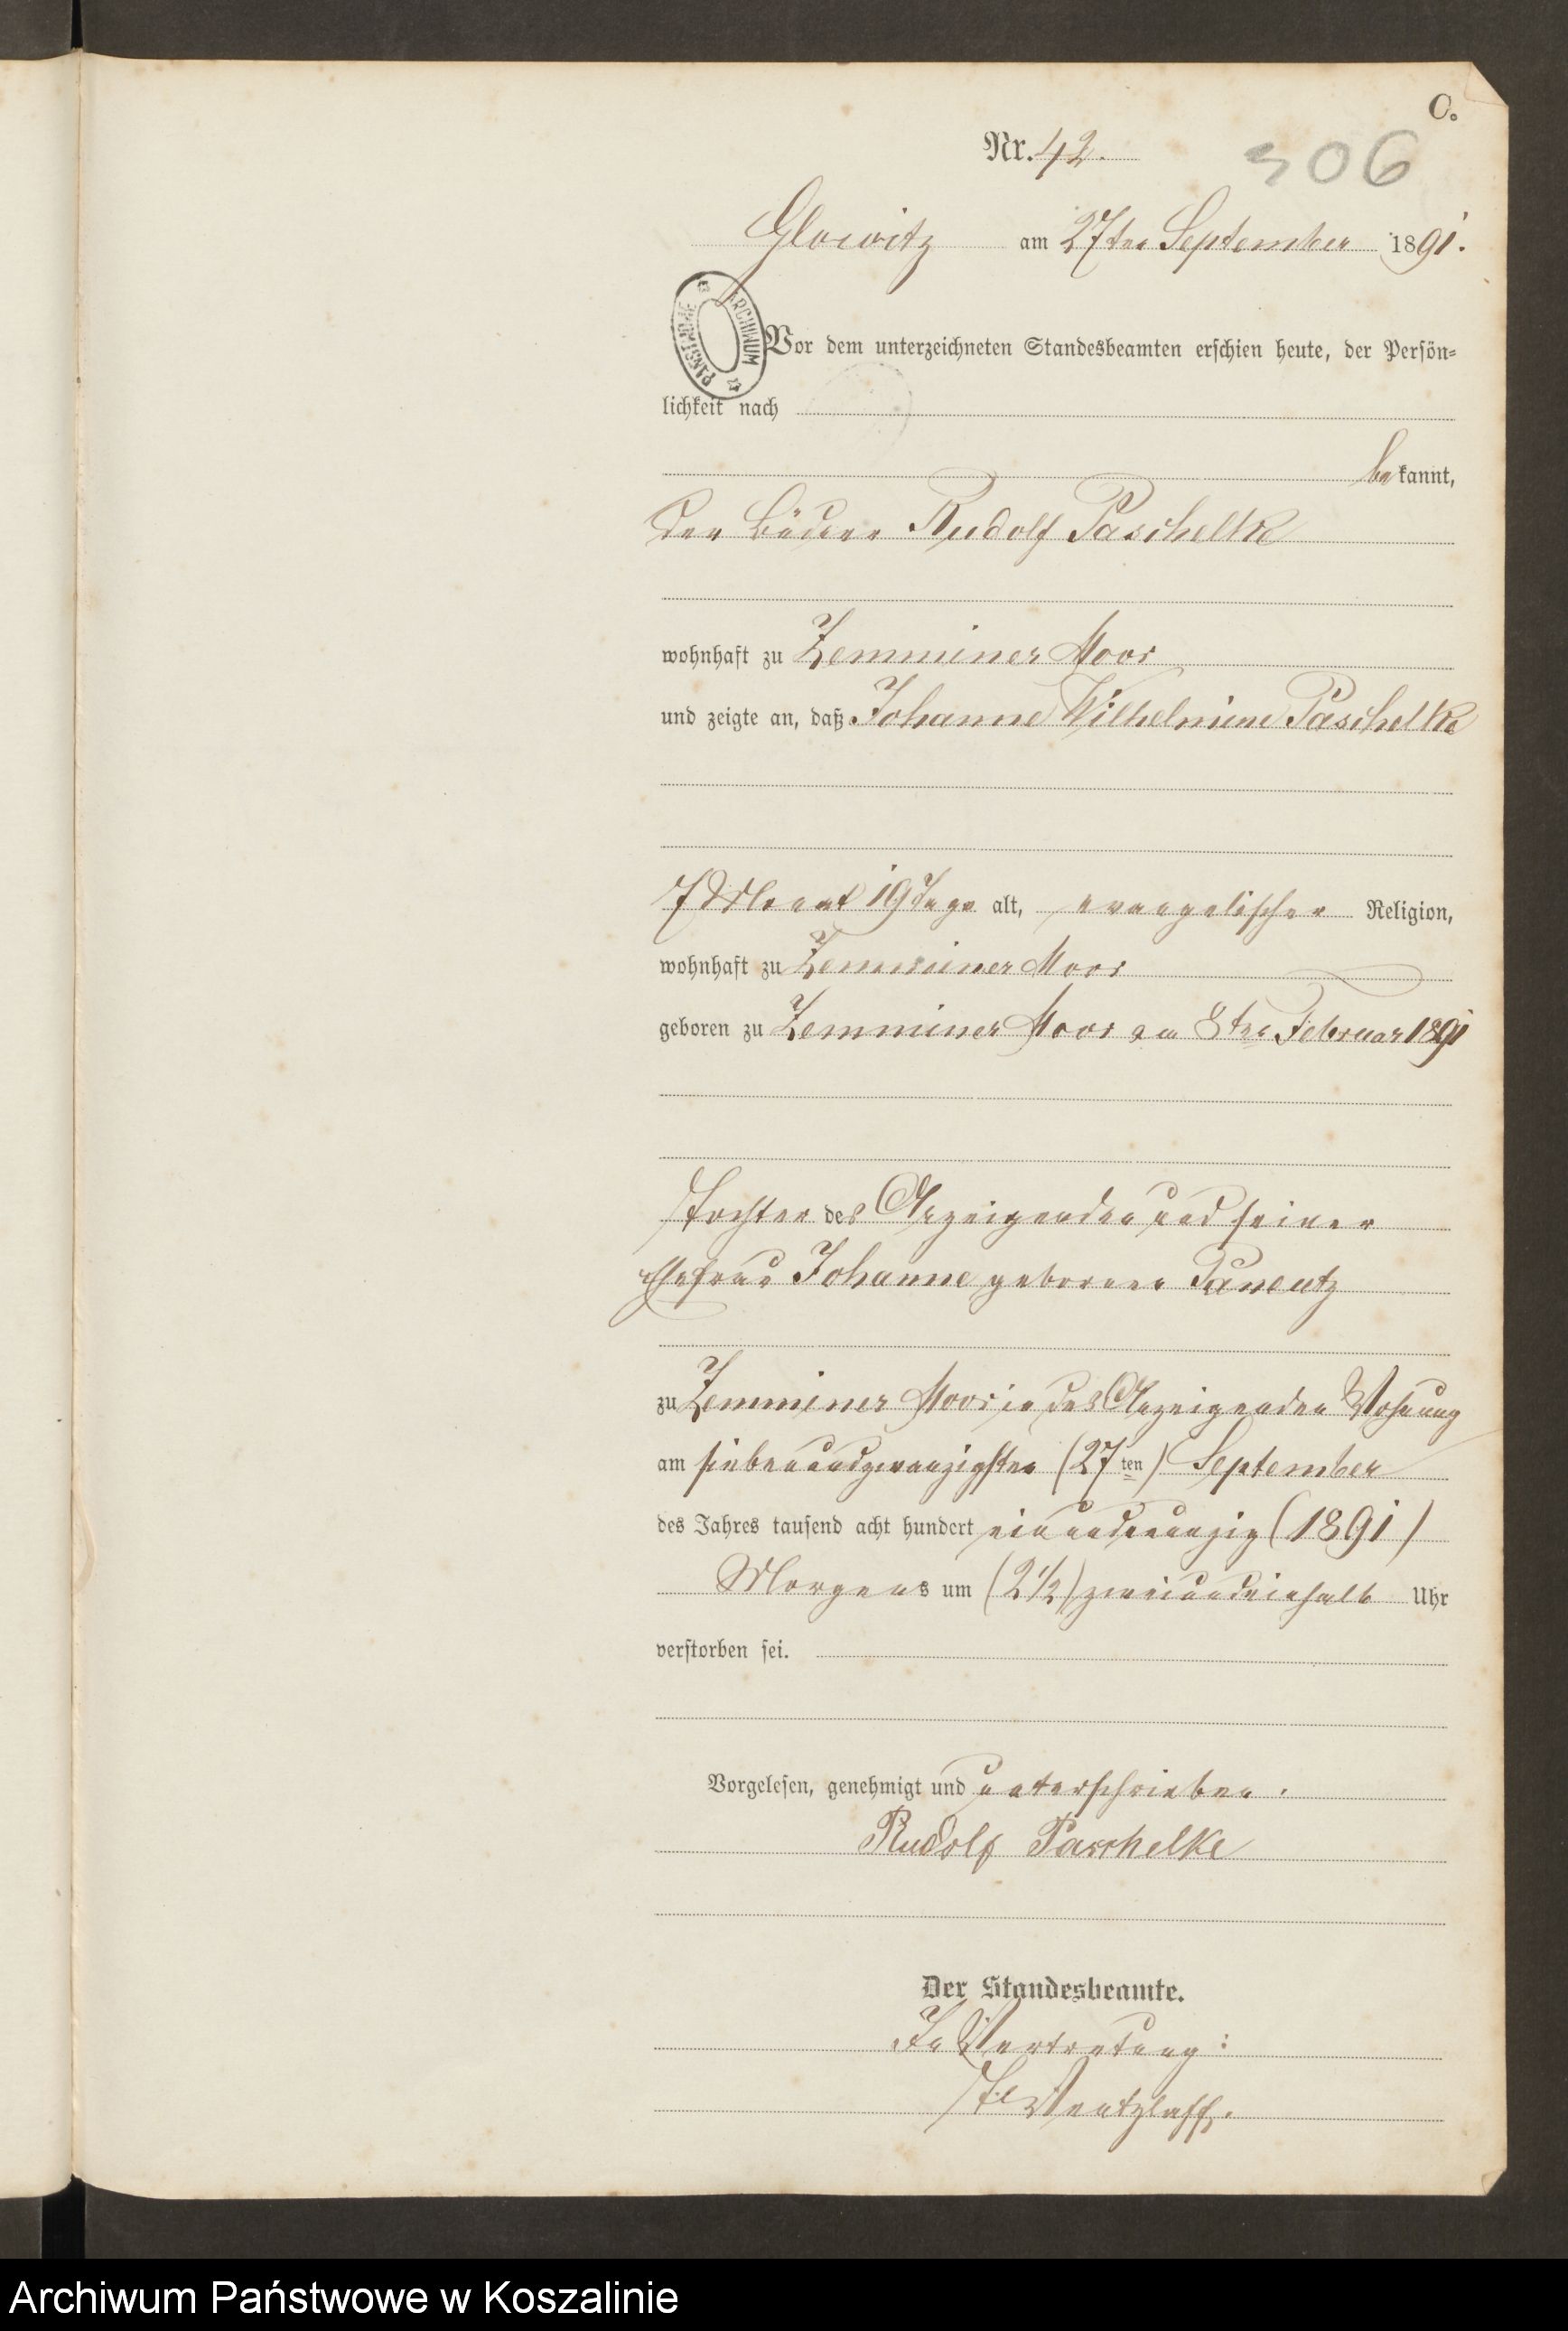 C.
Nr. 42.
306
Glowitz am 27ten September 1891.
ARCHIWUM PAŃSTWOWE
Vor dem unterzeichneten Standesbeamten erschien heute, der Persön-
lichkeit nach
bekannt,
der Büdner Rudolf Paschelke
wohnhaft zu Zemminer Moor
und zeigte an, daß Johanne Wilhelmine Paschelke
7 Monat 19 Tage alt, evangelischer Religion,
wohnhaft zu Zemminer Moor
geboren zu Zemminer Moor am 8ten Februar 1891
Tochter des Anzeigenden und seiner
Ehefrau Johanne geborenen
zu Zemminer Moor in des Anzeigenden Wohnung
am siebenundzwanzigsten (27ten) September
des Jahres tausend acht hundert einundneunzig (1891)
Morgens um (2½) zweiundeinhalb Uhr
verstorben sei.
Vorgelesen, genehmigt und unterschrieben.
Rudolf Paschelke
Der Standesbeamte.
In Vertretung:
Wentzlaff.
Archiwum Państwowe w Koszalinie